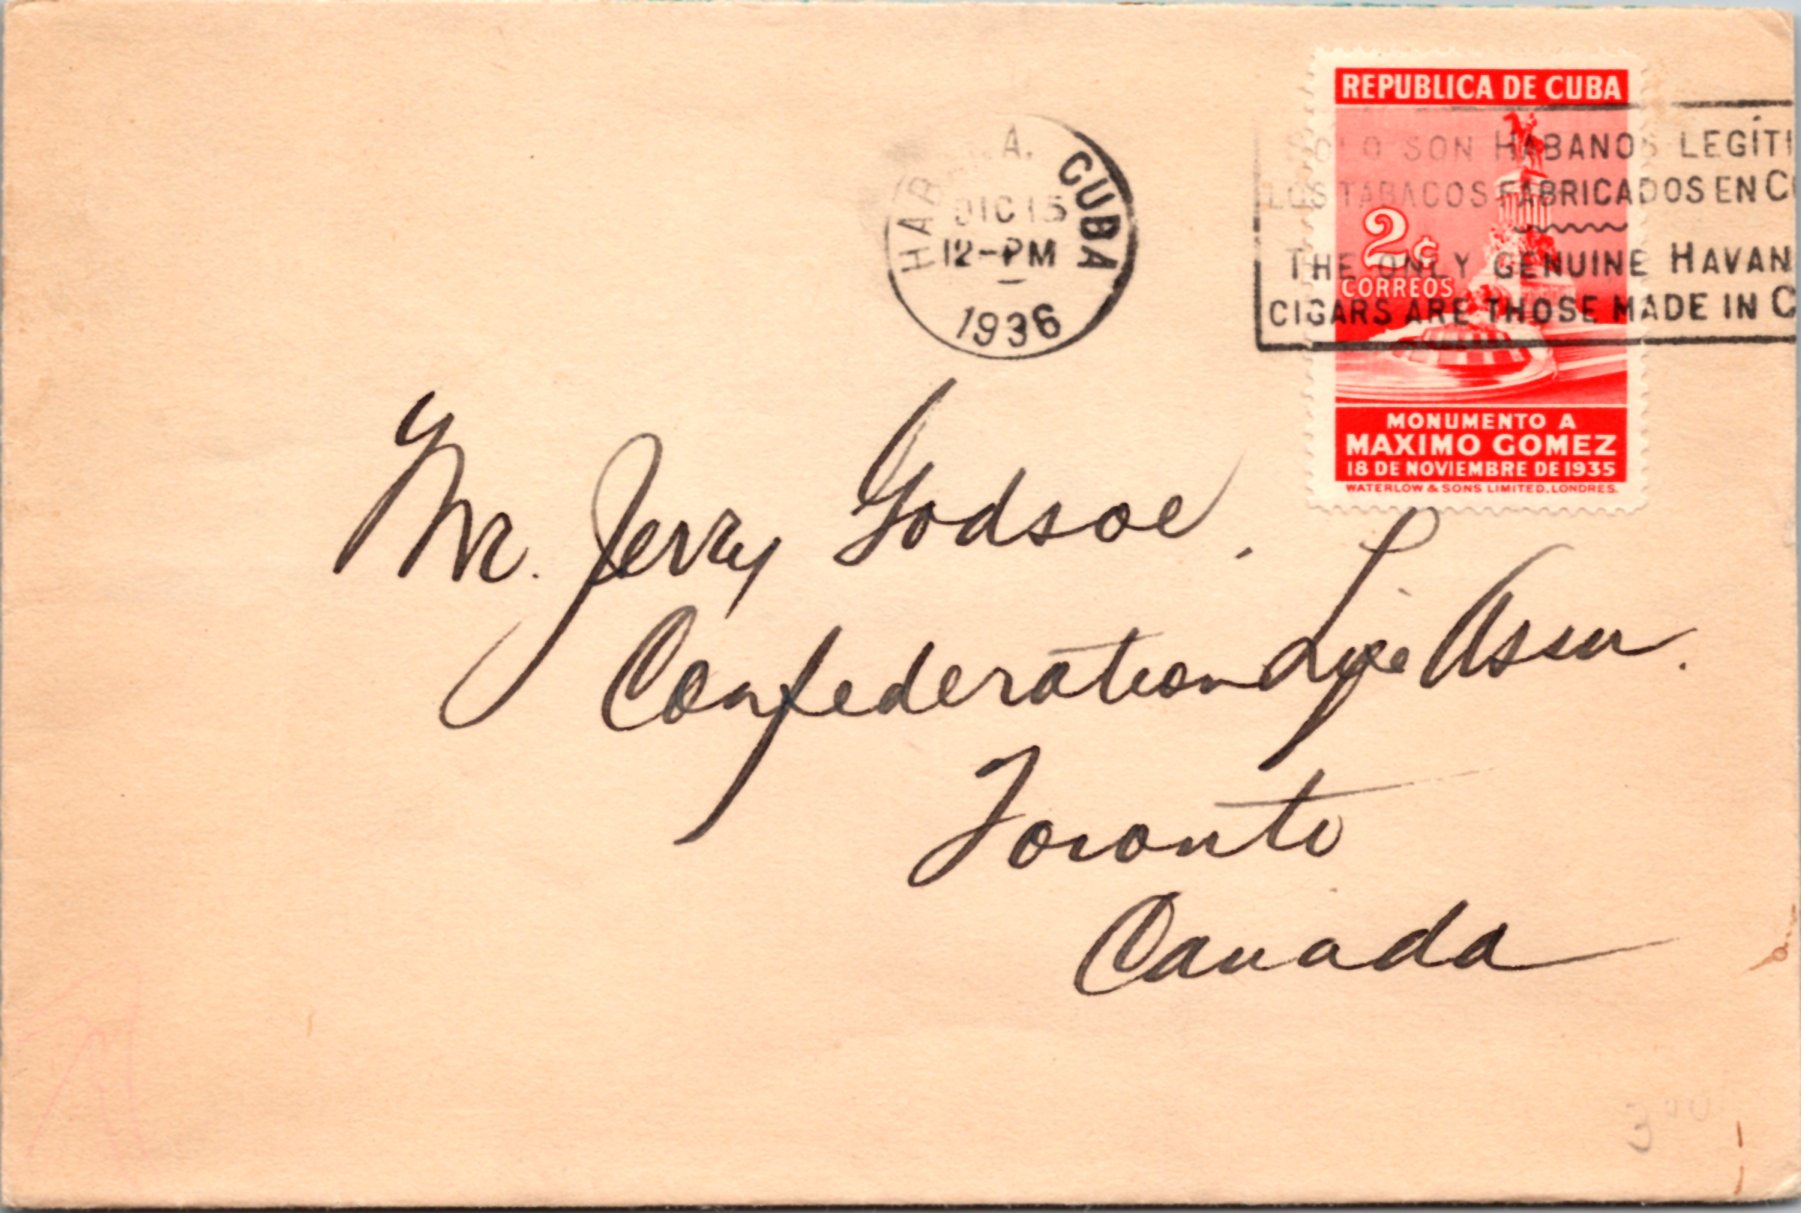 REPUBLICA DE CUBA
HABANA. CUBA
DIC 15
12-PM
1936
SOLO SON HABANOS LEGÍTI
LOS TABACOS FABRICADOS EN C
THE ONLY GENUINE HAVAN
CIGARS ARE THOSE MADE IN C
2¢
CORREOS
MONUMENTO A
MAXIMO GOMEZ
18 DE NOVIEMBRE DE 1935
WATERLOW & SONS LIMITED. LONDRES.
Mr. Jerry Godsoe.
Confederation Life Assn.
Toronto
Canada